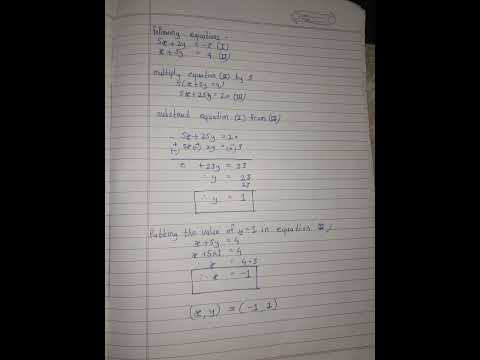 following equations -
5x + 2y = -3 (I)
x + 5y = 4 (II)
multiply equation (II) by 5
5(x + 5y = 4)
5x + 25y = 20 (III)
substract equation (I) from (III)
5x + 25y = 20
5x (+) 2y = (-) 3
0 + 23y = 23
∴ y = 23
23
∴ y = 1
Putting the value of y = 1 in equation II
x + 5y = 4
x + 5x1 = 4
∴ x = 4-5
∴ x = -1
(x, y) = (-1, 1)